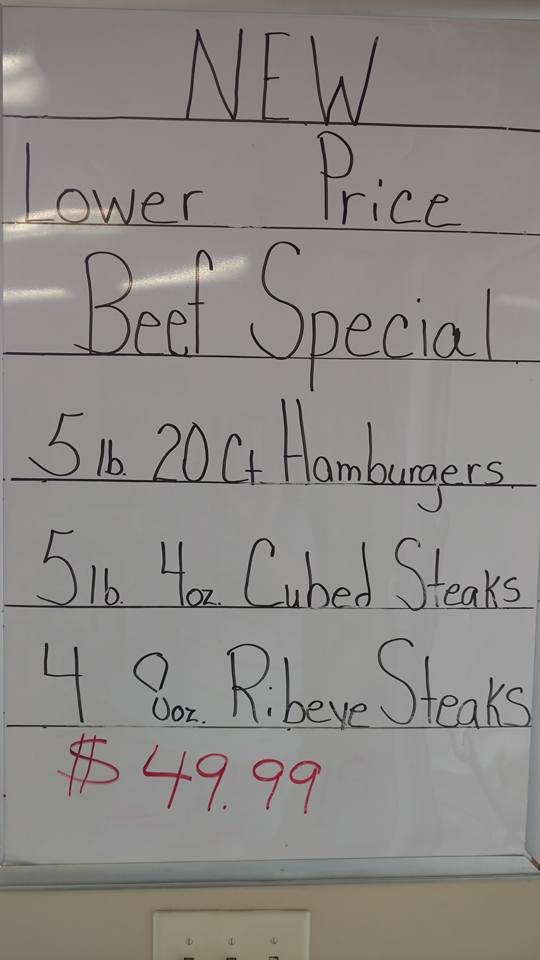 NEW
Lower Price
Beef Special
5 lb. 20 Ct Hamburgers
5 lb. 4oz. Cubed Steaks
4 8oz. Ribeye Steaks
$49.99